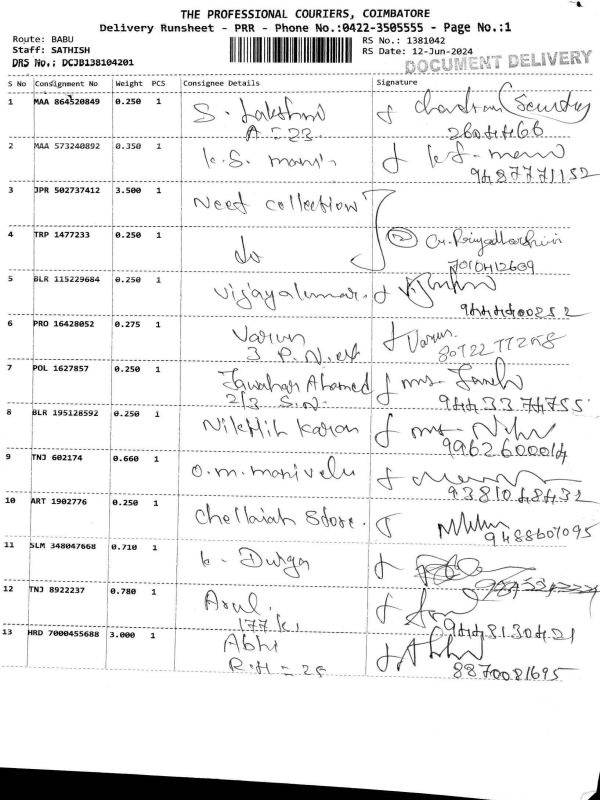 THE PROFESSIONAL COURIERS, COIMBATORE
Delivery Runsheet - PRR - Phone No.:0422-3505555 - Page No.:1
Route: BABU RS No.: 1381042
Staff: SATHISH RS Date: 12-Jun-2024
DRS No.: DCJB138104201 DOCUMENT DELIVERY
S No Consignment No Weight PCS Consignee Details Signature
1 MAA 864520849 0.250 1 S. Lakshmi
A = 23
2 MAA 573240892 0.350 1 K.S. mani
9487771152
3 JPR 502737412 3.500 1 Need collection
4 TRP 1477233 0.250 1 do
7010412609
5 BLR 115229684 0.250 1 Vijayakumar.
9444400252
6 PRO 16428052 0.275 1 Varun Varun.
3 P.N.
7 POL 1627857 0.250 1 Jawahar Ahamed
2/3 S.N.
8 BLR 195128592 0.250 1 Nikhil Karan
9 TNJ 602174 0.660 1 O.m. manivelu
9381048432
10 ART 1902776 0.250 1 Chellaiah Store.
9488607095
11 SLM 348047668 0.710 1 K. Durga
12 TNJ 8922237 0.780 1 Arul.
94448130421
13 HRD 7000455688 3.000 1 Abhi
R.H = 25 8870081695